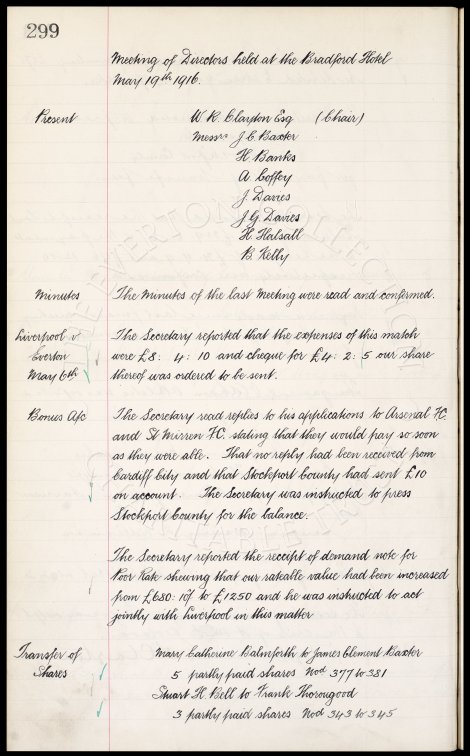 299
Meeting of Directors held at the Bradford Hotel
May 19th 1916.
Present W. R. Clayton Esq (Chair)
Messrs J. C. Baxter
H. Banks
A. Coffey
J. Davies
J. G. Davies
H. Halsall
B. Kelly
Minutes The Minutes of the last Meeting were read and confirmed.
Liverpool v The Secretary reported that the expenses of this match
Everton were £8: 4: 10 and cheque for £4: 2: 5 our share
May 6th thereof was ordered to be sent.
Bonus A/c The Secretary read replies to his applications to Arsenal F.C.
and St Mirren F.C. stating that they would pay so soon
as they were able. That no reply had been received from
Cardiff City and that Stockport County had sent £10
on account. The Secretary was instructed to press
Stockport County for the balance.
The Secretary reported the receipt of demand note for
Poor Rate shewing that our rateable value had been increased
from £680: 10/- to £1250 and he was instructed to act
jointly with Liverpool in this matter
Transfer of Mary Catherine Balmforth to James Clement Baxter
Shares 5 partly paid shares Nod 377 to 381
Stuart H. Bell to Frank Thorougood
3 partly paid shares Nod 343 to 345
THE EVERTON COLLECTION
CHARITABLE TRUST